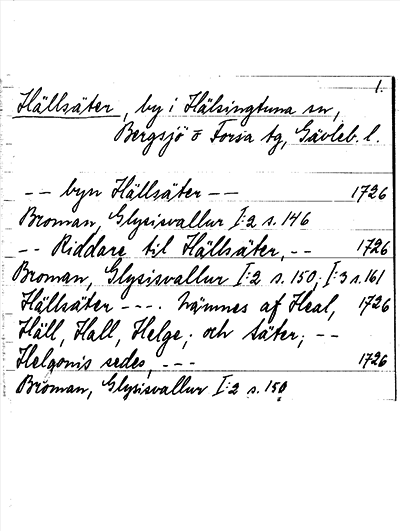 1.
Hällsäter, by i Hälsingtuna sn,
Bergsjö o Forsa tg, Gävleb. l.
-- byn Hällsäter -- 1726
Broman, Glysisvallur I:2 s. 146
-- Riddare til Hällsäter, -- 1726
Broman, Glysisvallur I:2 s. 150, I:3 s. 161
Hällsäter --- . nämnes af Heal, 1726
Häll, Hall, Helge; och säter; --
Helgonis sedes, --- 1726
Broman, Glysisvallur I:2 s. 150